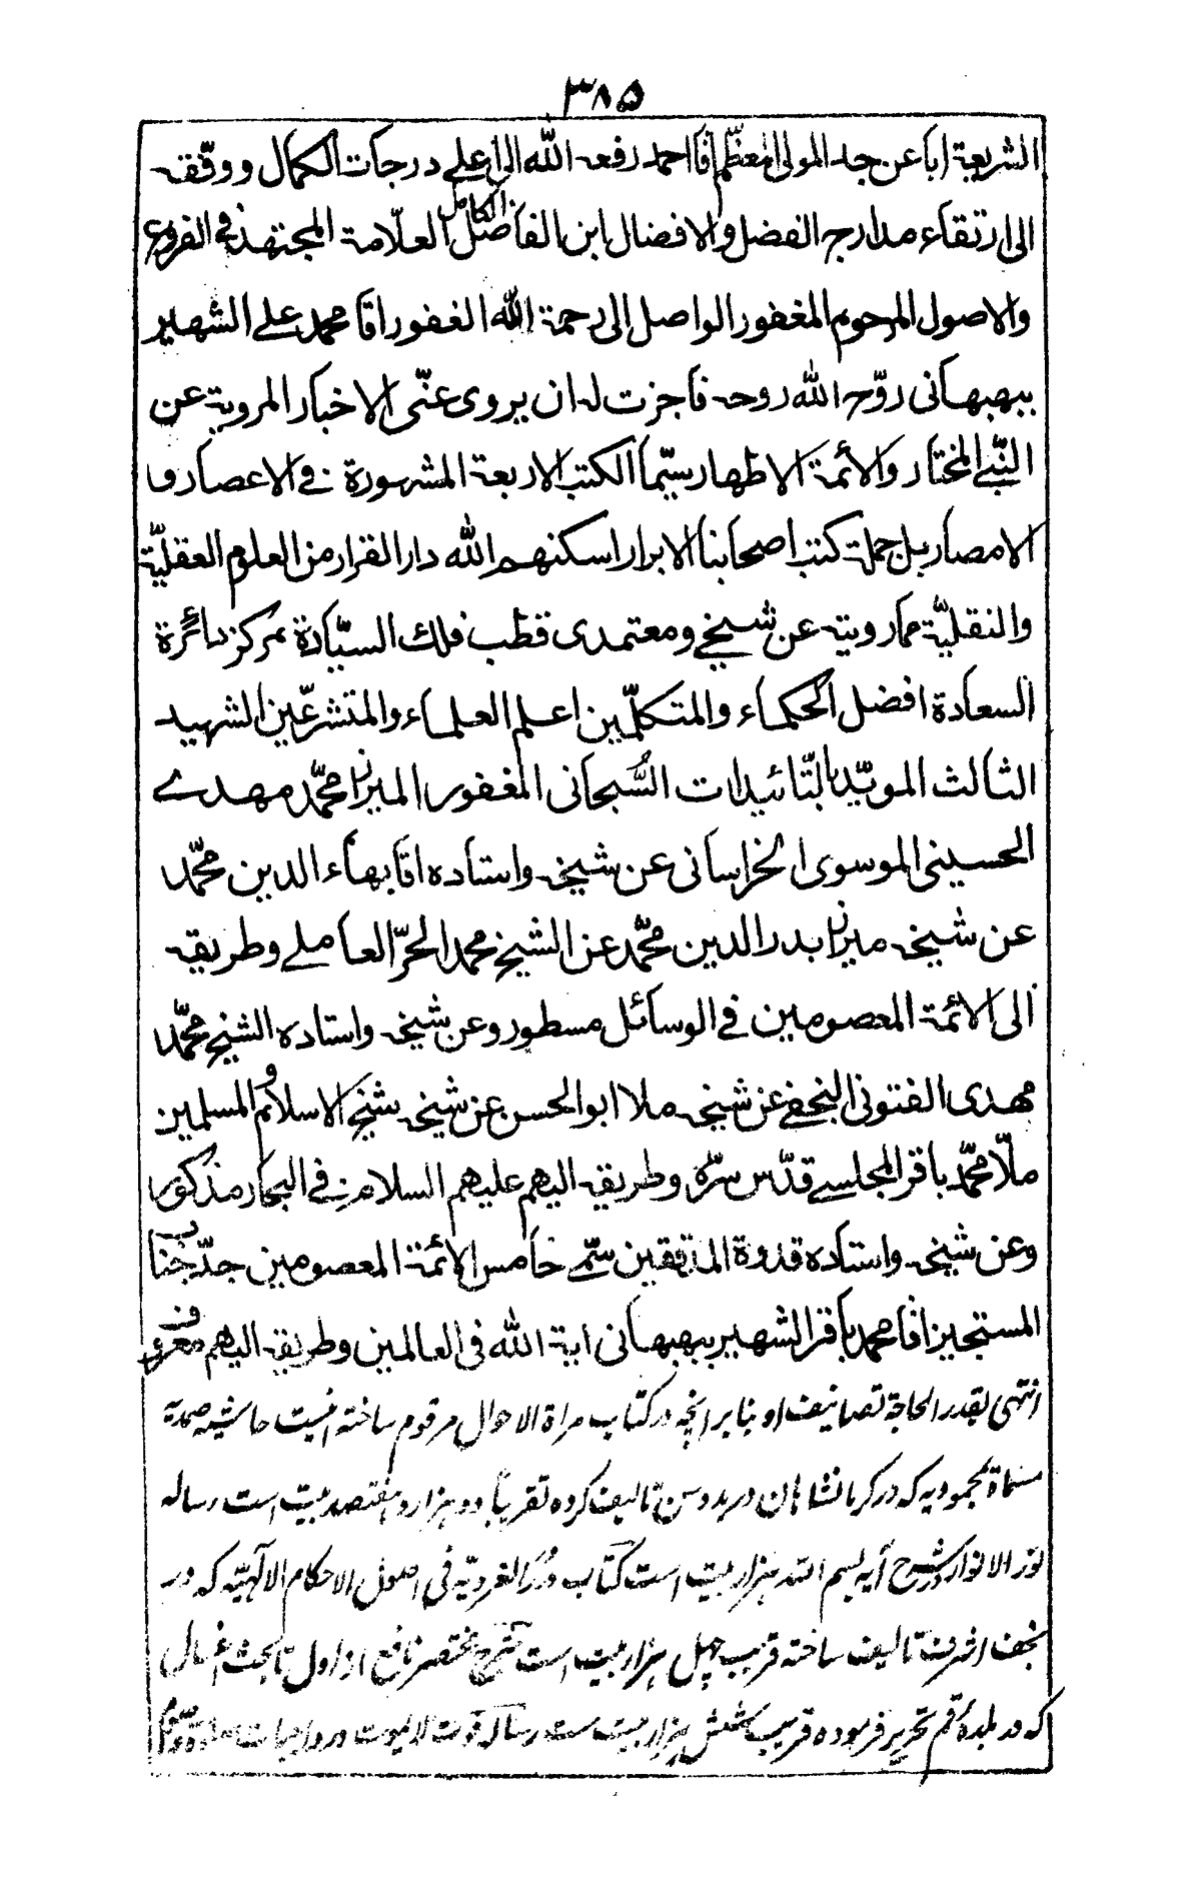 ۳۸۵
الشريعة ابا عن جد المولى المعظم اقا احمد رفعه الله الى اعلى درجات الكمال ووفّقه
الى ارتقاء مدارج الفضل والافضال ابن الفاضل الكامل العلّامة المجتهد فى الفروع
والاصول المرحوم المغفور الواصل الى رحمة الله الغفور اقا محمد على الشهير
ببهبهانى روّح الله روحه فاجزت له ان يروى عنّى الاخبار المروية عن
النّبى المختار والائمة الاطهار سيّما الكتب الاربعة المشهورة فى الاعصار و
الامصار بل جملة كتب اصحابنا الابرار اسكنهم الله دار القرار من العلوم العقليّة
والنقليّة مما رويته عن شيخى ومعتمدى قطب فلك السيّادة مركز دائرة
السعادة افضل الحكماء والمتكلّمين اعلم العلماء والمتشرّعين الشهيد
الثالث المويّد بالتّائيدات السُّبحانى المغفور الميرزا محمّد مهدى
الحسينى الموسوى الخراسانى عن شيخه واستاده اقا بهاء الدين محمّد
عن شيخه ميرزا بدر الدين محمّد عن الشيخ محمد الحرّ العاملى وطريقه
الى الائمة المعصومين فى الوسائل مسطور وعن شيخه واستاده الشيخ محمّد
مهدى الفتونى النجفى عن شيخه ملا ابو الحسن عن شيخه شيخ الاسلام و المسلمين
ملّا محمّد باقر المجلسى قدّس سرّه وطريقه اليهم عليهم السلام فى البحار مذكور
وعن شيخه واستاده قدوة المدققين سمّى خامس الائمة المعصومين جدّ جناب
المستجيز اقا محمد باقر الشهير ببهبهانى اية الله فى العالمين وطريقه اليهم معروف
انتهى بقدر الحاجة تصانيف او بنابر انچه در كتاب مراة الاحوال مرقوم ساخته اينست حاشيه صمديه
مسماة بمحموديه كه در كرمانشاهان در بدو سن تاليف كرده تقريباً دو هزار و هفتصد بيت است رساله
نور الانوار در شرح آيه بسم الله هزار بيت است كتاب دُرَر الغرويّه فى اصول الاحكام الالٓهيّه كه در
نجف اشرف تاليف ساخته قريب چهل هزار بيت است شرح مختصر نافع از اول تا بحث اغسال
كه در بلدهٔ قم تحرير فرموده قريب بشش هزار بيت ست رساله قوت لايموت در واجبات